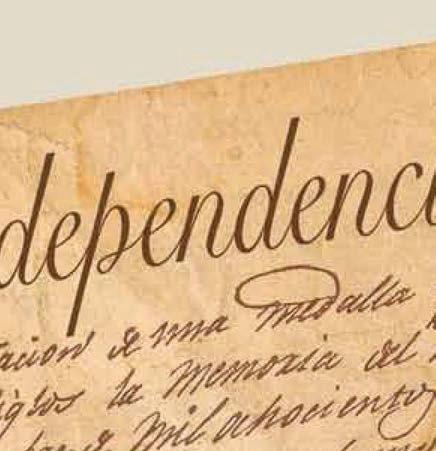 dependenc
tacion de una medalla
iglos la memoria del
mil ochociento